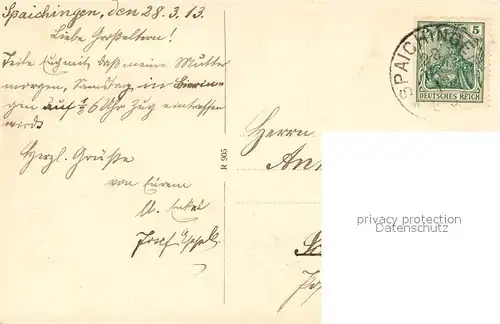 Spaichingen, den 28.3.13.
Liebe Großeltern!
Teile Euch mit daß meine Mutter
morgen, Samstag, in
gen auf ½6 Uhr Zug eintreffen
wird.
Herzl. Grüße
von Eurem
Enkel
Josef
R 905
SPAICHINGE
5
DEUTSCHES REICH
Herrn
privacy protection
Datenschutz